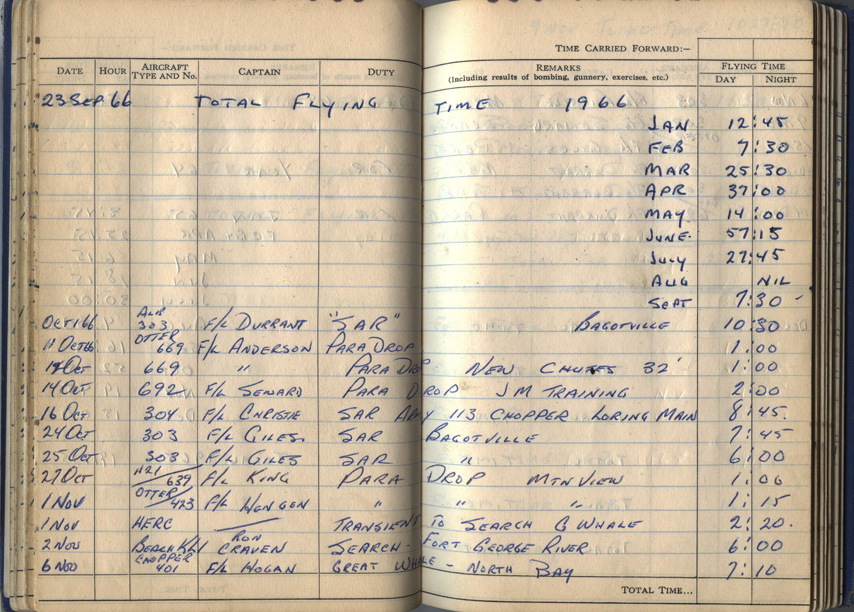 TIME CARRIED FORWARD:–
DATE HOUR AIRCRAFT TYPE AND No. CAPTAIN DUTY REMARKS (Including results of bombing, gunnery, exercises, etc.) FLYING TIME DAY NIGHT
23 SEP 66 TOTAL FLYING TIME 1966
JAN 12:45
FEB 7:30
MAR 25:30
APR 37:00
MAY 14:00
JUNE 57:15
July 27:45
AUG NIL
SEPT 7:30
OCT 1 66 ALB 303 F/L DURRANT "SAR" BAGOTVILLE 10:30
11 Oct 66 OTTER 669 F/L ANDERSON PARA DROP 1:00
Oct 669 " PARA DROP NEW CHUTES 32' 1:00
14 Oct 692 F/L SEWARD PARA DROP JM TRAINING 2:00
16 Oct 304 F/L CHRISTIE SAR ARMY 113 CHOPPER LORING MAIN 8:45
24 Oct 303 F/L GILES SAR BAGOTVILLE 7:45
25 Oct 303 F/L GILES SAR " 6:00
27 Oct H21 639 F/L KING PARA DROP MTN VIEW 1:00
1 NOV OTTER 423 F/L " " " 1:15
1 NOV HERC TRANSIENT TO SEARCH G WHALE 2:20
2 NOV BEACH RON CRAVEN SEARCH – FORT GEORGE RIVER 6:00
6 NOV CHOPPER 401 F/L HOGAN GREAT WHALE – NORTH BAY 7:10
TOTAL TIME...